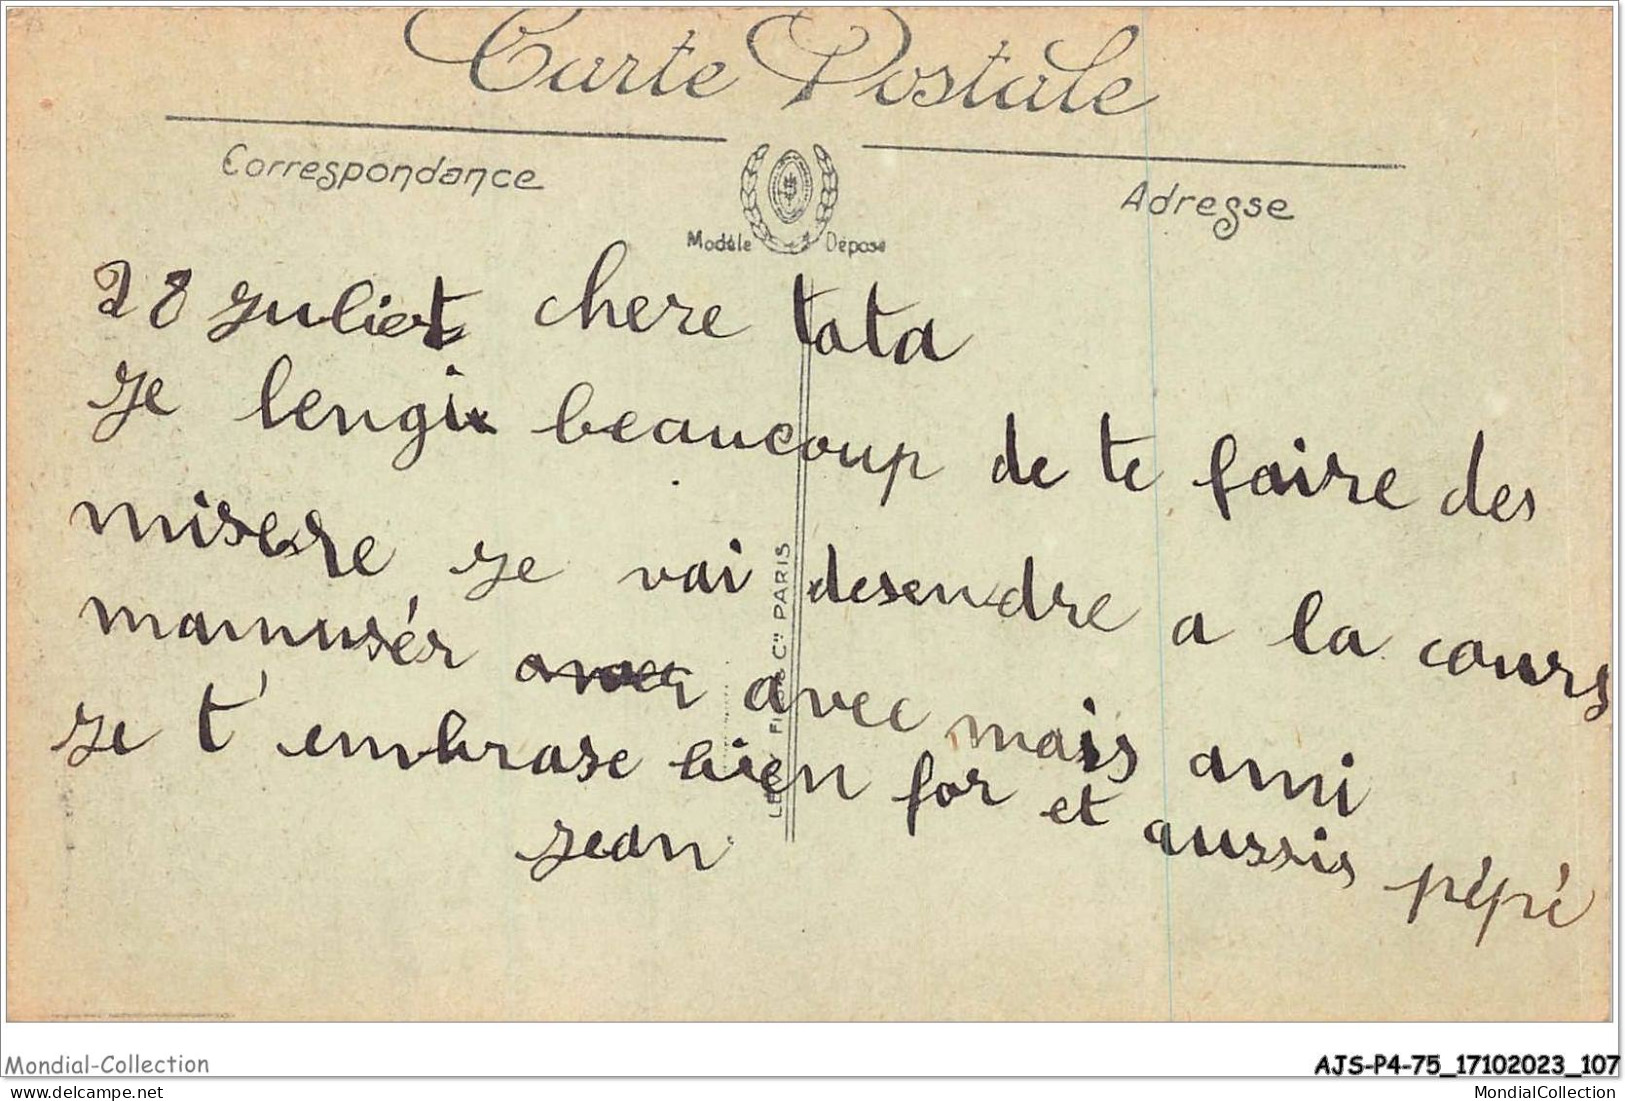 Carte Postale
Correspondance
Adresse
Modèle Déposé
28 juliet chere tata
je lengi beaucoup de te faire des
misere je vai desendre a la cours
mamusér avec avec mais ami
je t'embrase bien for et aussis pépé
jean
Cie PARIS
Mondial-Collection
AJS-P4-75_17102023_107
www.delcampe.net
MondialCollection